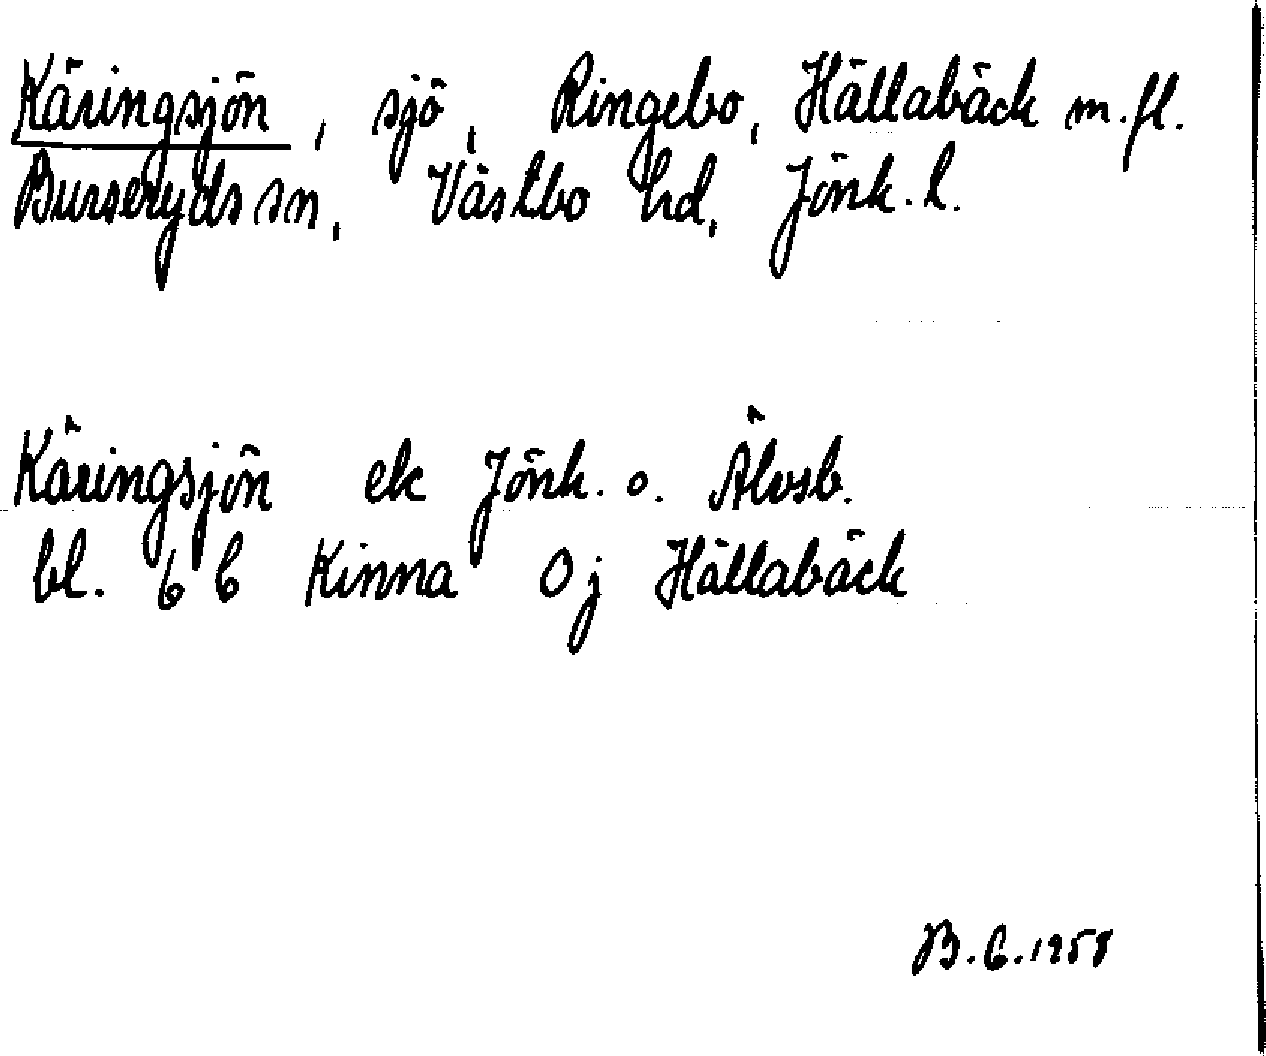 Käringsjön, sjö, Ringebo, Hällabäck m.fl.
Burseryds sn, Västbo hd, Jönk. l.
Käringsjön ek Jönk. o. Älvsb.
bl. 6 C Kinna 0 j Hällabäck
B. C. 1958